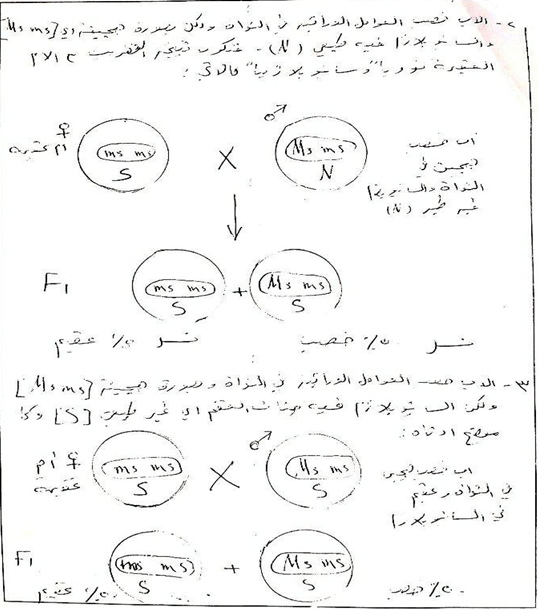 ٢- الاب خصب العوامل الوراثية في النواة ولكن بصورة هجينة اي [Ms ms]
والسايتوبلازم فيه طبيعي (N) - فتكون نتيجة التضريب مع الام
العقيمة نوويا وسايتوبلازميا كالاتي :
♀
ام عقيمة
ms ms
S
X
♂
Ms ms
N
اب خصب
هجين في
النواة والسايتوبلازم
(N)
F1
ms ms
S
+
Ms ms
S
٥٠٪ عقيم
٥٠٪ خصب
٣- الاب خصب العوامل الوراثية في النواة وبصورة هجينة [Ms ms]
ولكن السايتوبلازم فيه جينات العقم اي غير طبيعي [S] وكما
موضح ادناه :
♀ أم
عقيمة
ms ms
S
X
♂
Ms ms
S
اب خصب هجين
في النواة وعقيم
في السايتوبلازم
F1
ms ms
S
+
Ms ms
S
٥٠٪ عقيم
٥٠٪ خصب